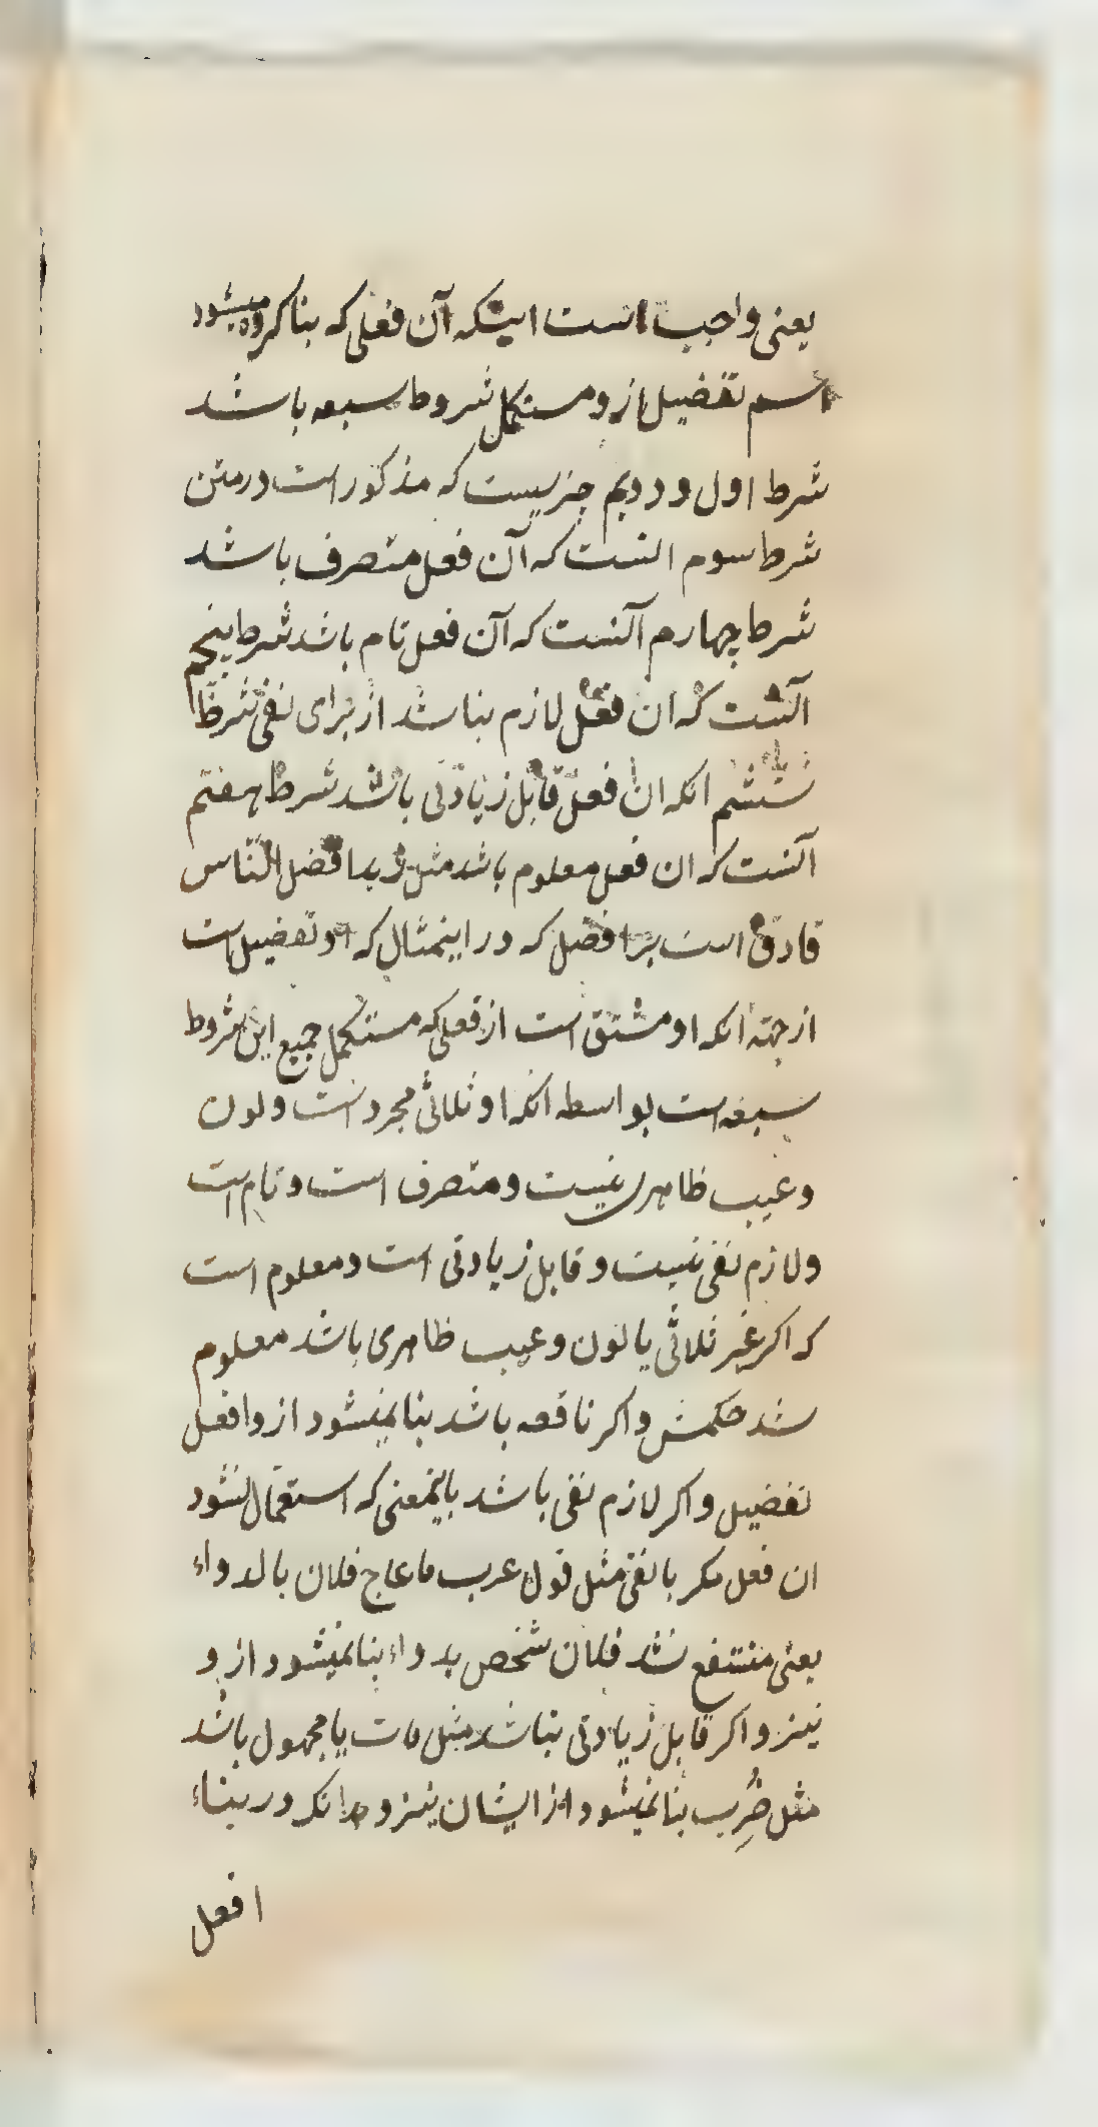 یعنی واجب است اینکه آن فعلی که بنا کرده میشود
اسم تفضیل ازو مستکمل شروط سبعه باشد
شرط اول و دویم چیزیست که مذکور است در متن
شرط سوم انست که آن فعل متصرف باشد
شرط چهارم آنست که آن فعل تام باشد شرط پنجم
آنست که ان فعل لازم نباشد از برای نفی شرط
ششم انکه ان فعل قابل زیادتی باشد شرط هفتم
آنست که ان فعل معلوم باشد مثل زید افضل الناس
است بر افضل که در اینمثال که او تفضیل است
از جهة انکه او مشتق است از فعلی که مستکمل جمیع این شروط
سبعه است بواسطه انکه او ثلاثی مجرد است و لون
و عیب ظاهری نیست و متصرف است و تام است
و لازم نفی نیست و قابل زیادتی است و معلوم است
که اکر غیر ثلاثی یا لون و عیب ظاهری باشد معلوم
شد حکمش و اکر ناقصه باشد بنا نمیشود ازو افعل
تفضیل و اکر لازم نفی باشد باینمعنی که استعمال نشود
ان فعل مکر با نفی مثل قول عرب ما عاج فلان بالدواء
یعنی منتفع نشد فلان شخص بدواء بنا نمیشود ازو
نیز و اکر قابل زیادتی نباشد مثل مات یا مجهول باشد
مثل ضُرِب بنا نمیشود از ایشان نیز و بدانکه در بناء
افعل